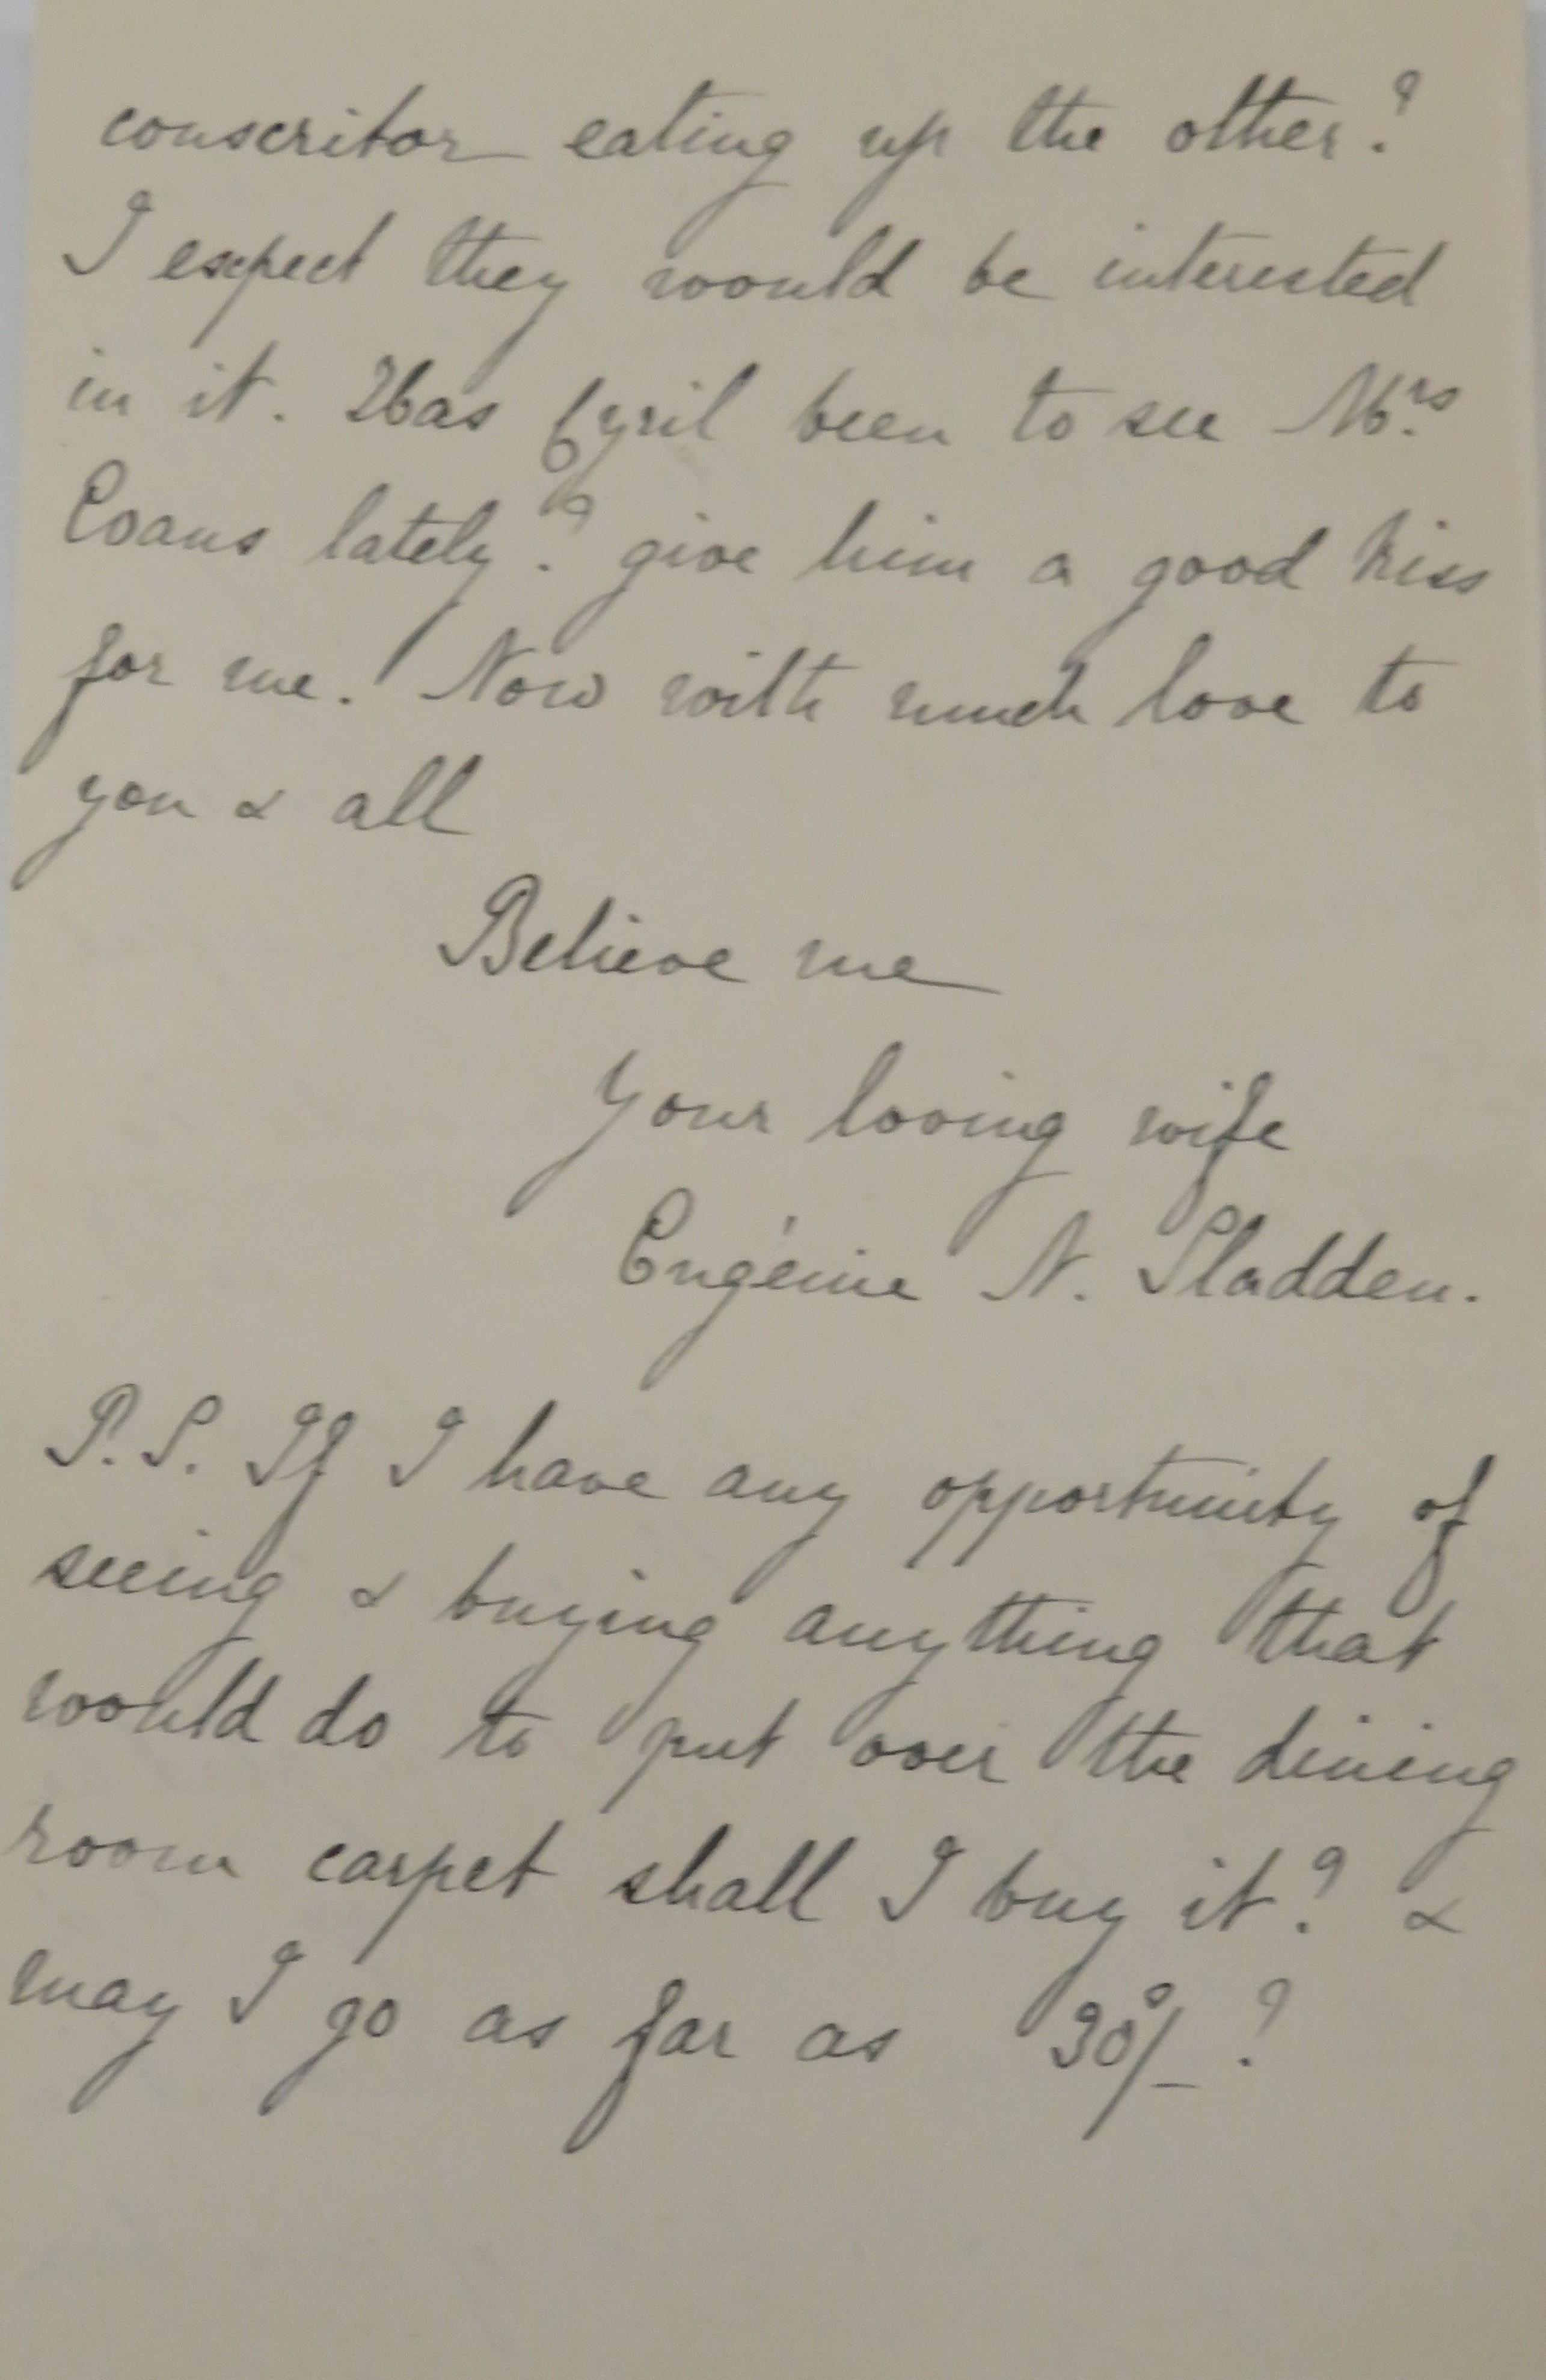 conscritor eating up the other?
I expect they would be interested
in it. Has Cyril been to see Mrs.
Evans lately? give him a good kiss
for me. Now with much love to
you & all
Believe me
Your loving wife
Eugénie N. Sladden.
P.S. If I have any opportunity of
seeing & buying anything that
would do to put over the dining
room carpet shall I buy it? &
may I go as far as 30/- ?